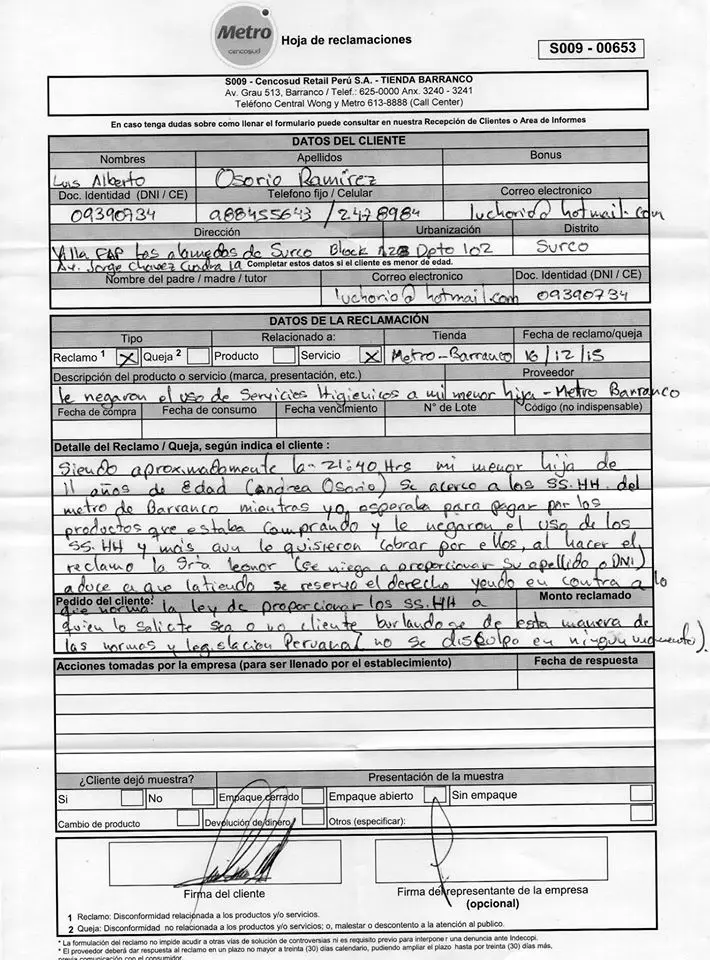 Metro
cencosud
Hoja de reclamaciones
S009 - 00653
S009 - Cencosud Retail Perú S.A. - TIENDA BARRANCO
Av. Grau 513, Barranco / Telef.: 625-0000 Anx. 3240 - 3241
Teléfono Central Wong y Metro 613-8888 (Call Center)
En caso tenga dudas sobre como llenar el formulario puede consultar en nuestra Recepción de Clientes o Area de Informes
DATOS DEL CLIENTE
Nombres Apellidos Bonus
Luis Alberto Osorio Ramírez
Doc. Identidad (DNI / CE) Telefono fijo / Celular Correo electronico
09390734 988455643 / 2478984 luchorio@hotmail.com
Dirección Urbanización Distrito
Villa FAP Las alamedas de Surco Block Dpto 102 Surco
Av. Jorge Chavez Cuadra 19 Completar estos datos si el cliente es menor de edad.
Nombre del padre / madre / tutor Correo electronico Doc. Identidad (DNI / CE)
luchorio@hotmail.com 09390734
DATOS DE LA RECLAMACIÓN
Tipo Relacionado a: Tienda Fecha de reclamo/queja
Reclamo 1 X Queja 2 Producto Servicio X Metro - Barranco 16/12/15
Descripción del producto o servicio (marca, presentación, etc.) Proveedor
le negaron el uso de Servicios Higienicos a mi menor hija - Metro Barranco
Fecha de compra Fecha de consumo Fecha vencimiento N° de Lote Código (no indispensable)
Detalle del Reclamo / Queja, según indica el cliente :
Siendo aproximadamente la- 21:40 Hrs mi menor hija de
11 años de Edad (Andrea Osorio) se acerco a los SS.HH. del
metro de Barranco mientras yo esperaba para pagar por los
productos que estaba comprando y le negaron el uso de los
SS.HH y más aun le quisieron cobrar por ellos, al hacer el
reclamo la Srta leonor (se niega a proporcionar su apellido o DNI)
aduce a que la tienda se reserva el derecho yendo en contra a lo
Pedido del cliente: Monto reclamado
que norma la ley de proporcionar los SS.HH a
quien lo solicite sea o no cliente burlandose de esta manera de
las normas y legislacion Peruana( no se disculpo en ningun momento).
Acciones tomadas por la empresa (para ser llenado por el establecimiento) Fecha de respuesta
¿Cliente dejó muestra? Presentación de la muestra
Si No Empaque cerrado Empaque abierto Sin empaque
Cambio de producto Devolución de dinero Otros (especificar):
Firma del cliente Firma del representante de la empresa
(opcional)
1 Reclamo: Disconformidad relacionada a los productos y/o servicios.
2 Queja: Disconformidad no relacionada a los productos y/o servicios; o, malestar o descontento a la atención al publico.
* La formulación del reclamo no impide acudir a otras vías de solución de controversias ni es requisito previo para interponer una denuncia ante Indecopi.
* El proveedor deberá dar respuesta al reclamo en un plazo no mayor a treinta (30) días calendario, pudiendo ampliar el plazo hasta por treinta (30) días más,
previa comunicación con el consumidor.